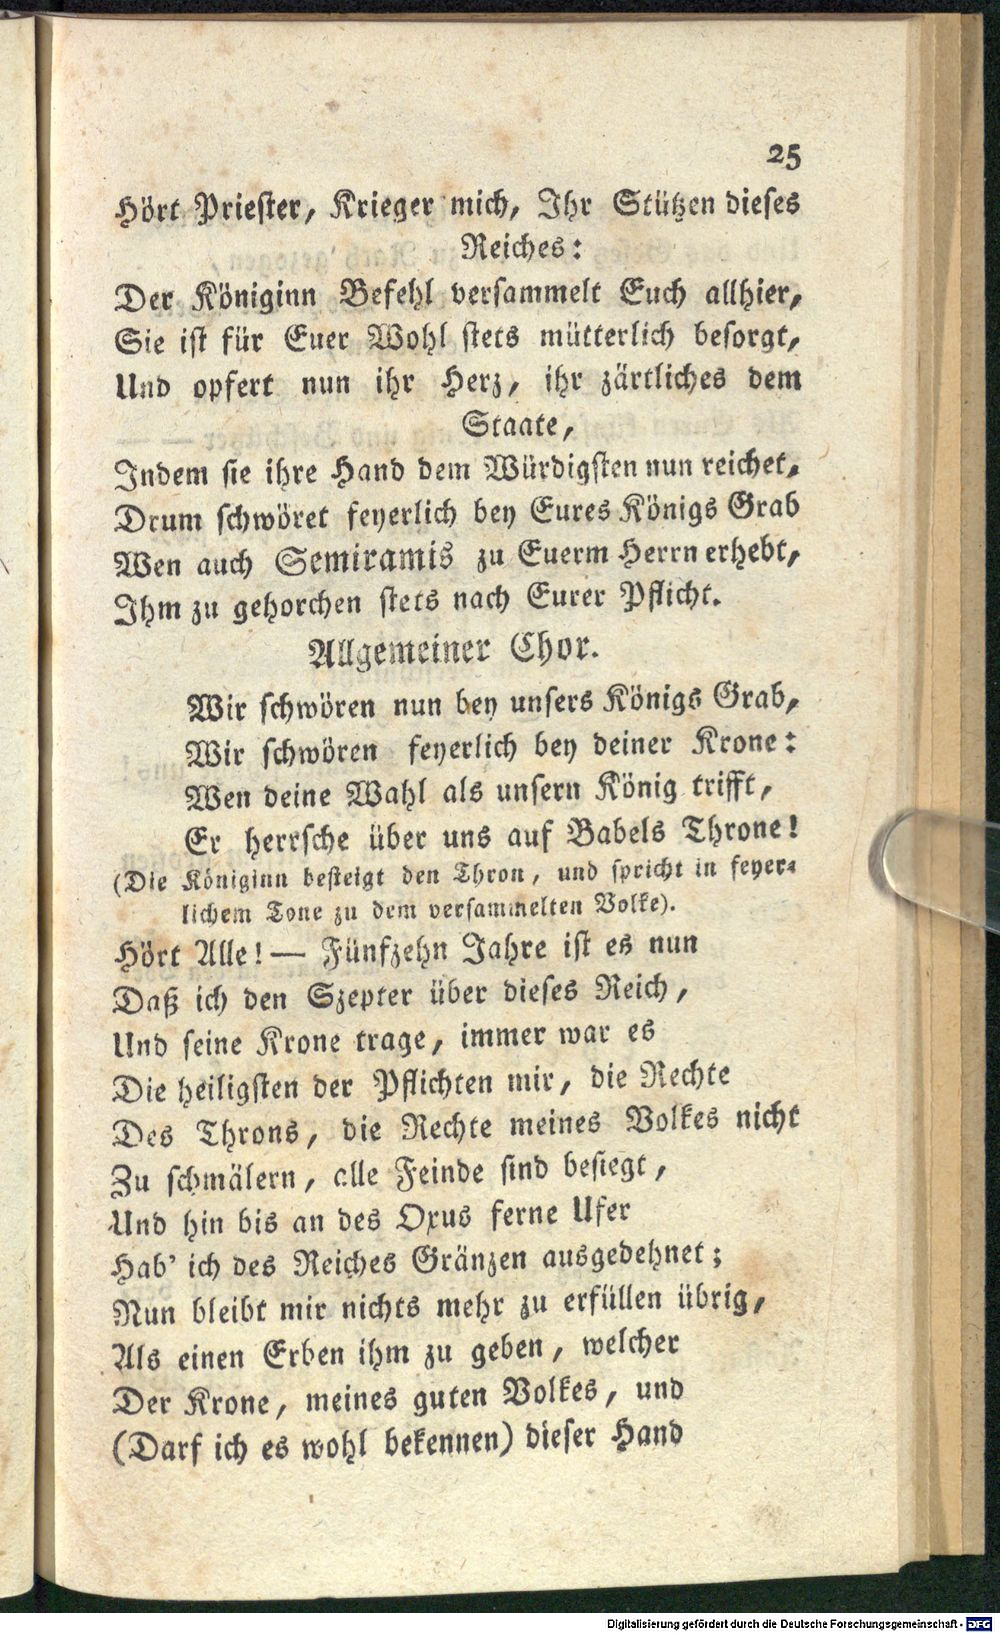 25
Hört Priester, Krieger mich, Ihr Stützen dieses
Reiches:
Der Königinn Befehl versammelt Euch allhier,
Sie ist für Euer Wohl stets mütterlich besorgt,
Und opfert nun ihr Herz, ihr zärtliches dem
Staate,
Indem sie ihre Hand dem Würdigsten nun reichet,
Drum schwöret feyerlich bey Eures Königs Grab
Wen auch Semiramis zu Euerm Herrn erhebt,
Ihm zu gehorchen stets nach Eurer Pflicht.
Allgemeiner Chor.
Wir schwören nun bey unsers Königs Grab,
Wir schwören feyerlich bey deiner Krone:
Wen deine Wahl als unsern König trifft,
Er herrsche über uns auf Babels Throne!
(Die Königinn besteigt den Thron, und spricht in feyer-
lichem Tone zu dem versammelten Volke).
Hört Alle! — Fünfzehn Jahre ist es nun
Daß ich den Szepter über dieses Reich,
Und seine Krone trage, immer war es
Die heiligsten der Pflichten mir, die Rechte
Des Throns, die Rechte meines Volkes nicht
Zu schmälern, alle Feinde sind besiegt,
Und hin bis an des Oxus ferne Ufer
Hab' ich des Reiches Gränzen ausgedehnet;
Nun bleibt mir nichts mehr zu erfüllen übrig,
Als einen Erben ihm zu geben, welcher
Der Krone, meines guten Volkes, und
(Darf ich es wohl bekennen) dieser Hand
Digitalisierung gefördert durch die Deutsche Forschungsgemeinschaft - DFG